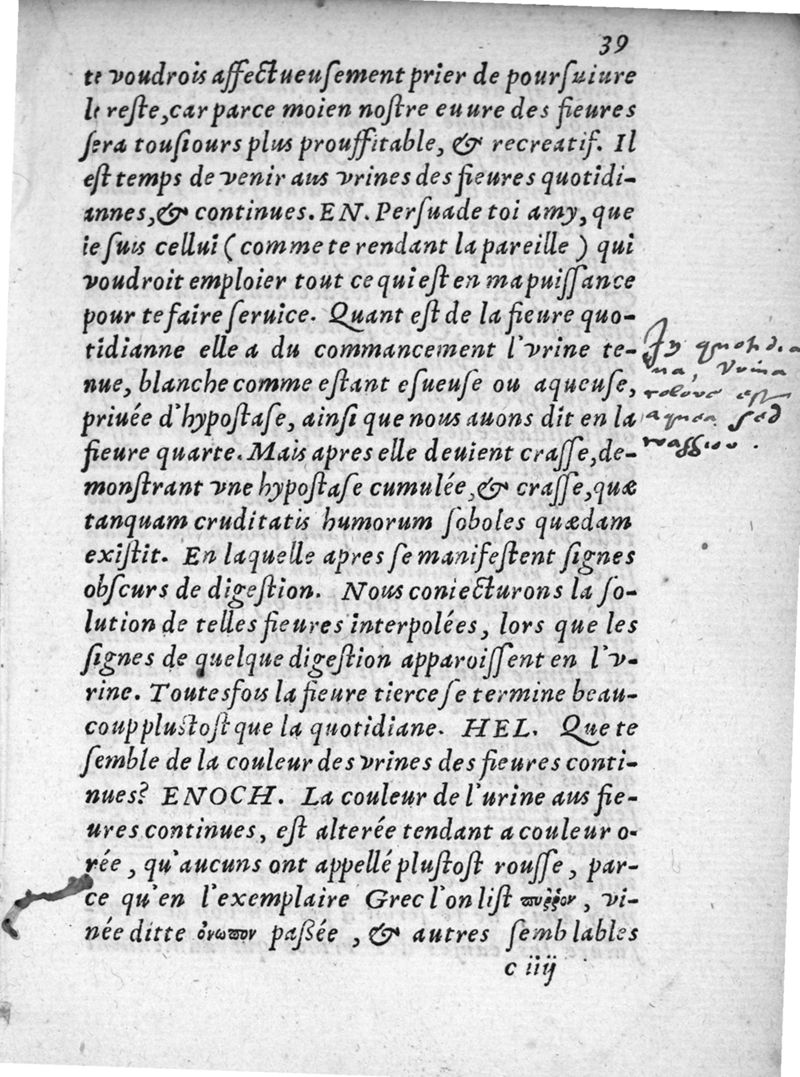 39
te voudrois affectueuſement prier de pourſuiure
le reſte, car par ce moien noſtre euure des fieures
ſera touſiours plus prouffitable, & recreatif. Il
eſt temps de venir aus vrines des fieures quotidi-
annes, & continues. EN. Perſuade toi amy, que
ie ſuis cellui ( comme te rendant la pareille ) qui
voudroit emploier tout ce qui eſt en ma puiſſance
pour te faire ſeruice. Quant eſt de la fieure quo-
tidianne elle a du commancement l'vrine te-
nue, blanche comme eſtant eſueuſe ou aqueuſe,
priuée d'hypoſtaſe, ainſi que nous auons dit en la
fieure quarte. Mais apres elle deuient craſſe, de-
monſtrant vne hypoſtaſe cumulée, & craſſe, quæ
tanquam cruditatis humorum ſoboles quædam
exiſtit. En laquelle apres ſe manifeſtent ſignes
obſcurs de digeſtion. Nous coniecturons la ſo-
lution de telles fieures interpolées, lors que les
ſignes de quelque digeſtion apparoiſſent en l'v-
rine. Toutesfois la fieure tierce ſe termine beau-
coup pluſtoſt que la quotidiane. HEL. Que te
ſemble de la couleur des vrines des fieures conti-
nues? ENOCH. La couleur de l'urine aus fie-
ures continues, eſt alterée tendant a couleur o-
rée, qu'aucuns ont appellé pluſtoſt rouſſe, par-
ce qu'en l'exemplaire Grec l'on liſt πυῤῥον, vi-
née ditte ὀνωπον paßée, & autres ſemblables
c iiij
In quotidia
na, vrina
colore est
aquea sed